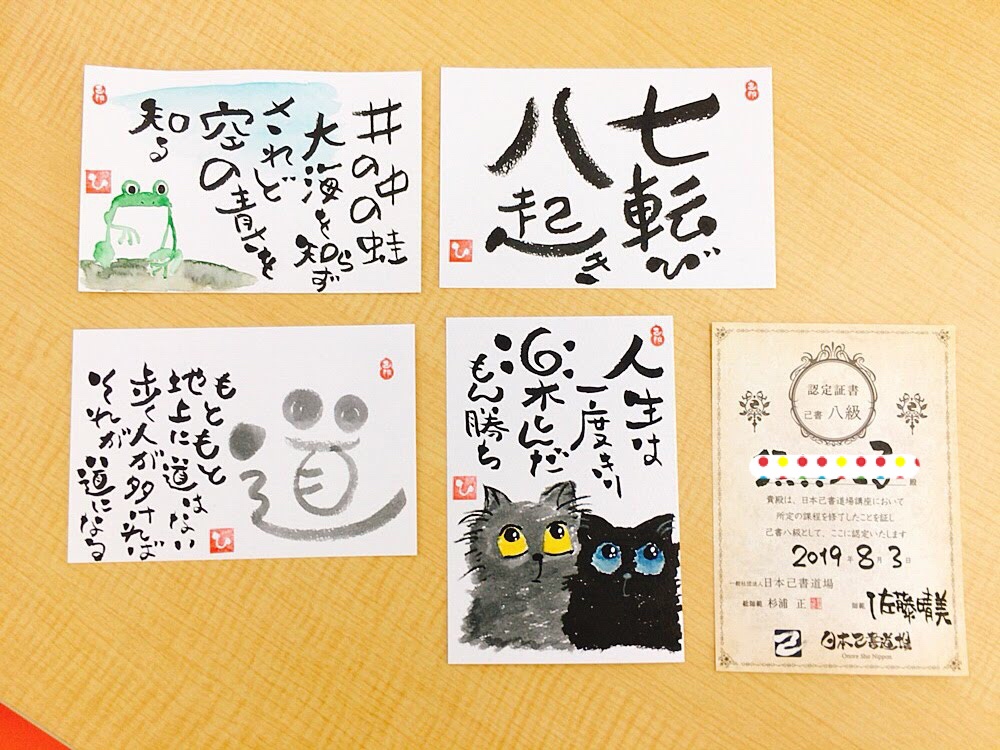 井の中の蛙
大海を知らず
されど
空の青さを
知る
ひ
七転び
八起き
ひ
道
もともと
地上に道はない
歩く人が多ければ
それが道になる
ひ
人生は
一度きり
楽しんだ
もん勝ち
ひ
認定証書
己書 八級
殿
貴殿は、日本己書道場講座において
所定の課程を修了したことを証し
己書八級として、ここに認定いたします
2019年8月3日
一般社団法人日本己書道場
総師範 杉浦 正
師範 佐藤晴美
日本己書道場
Onore Sho Nippon